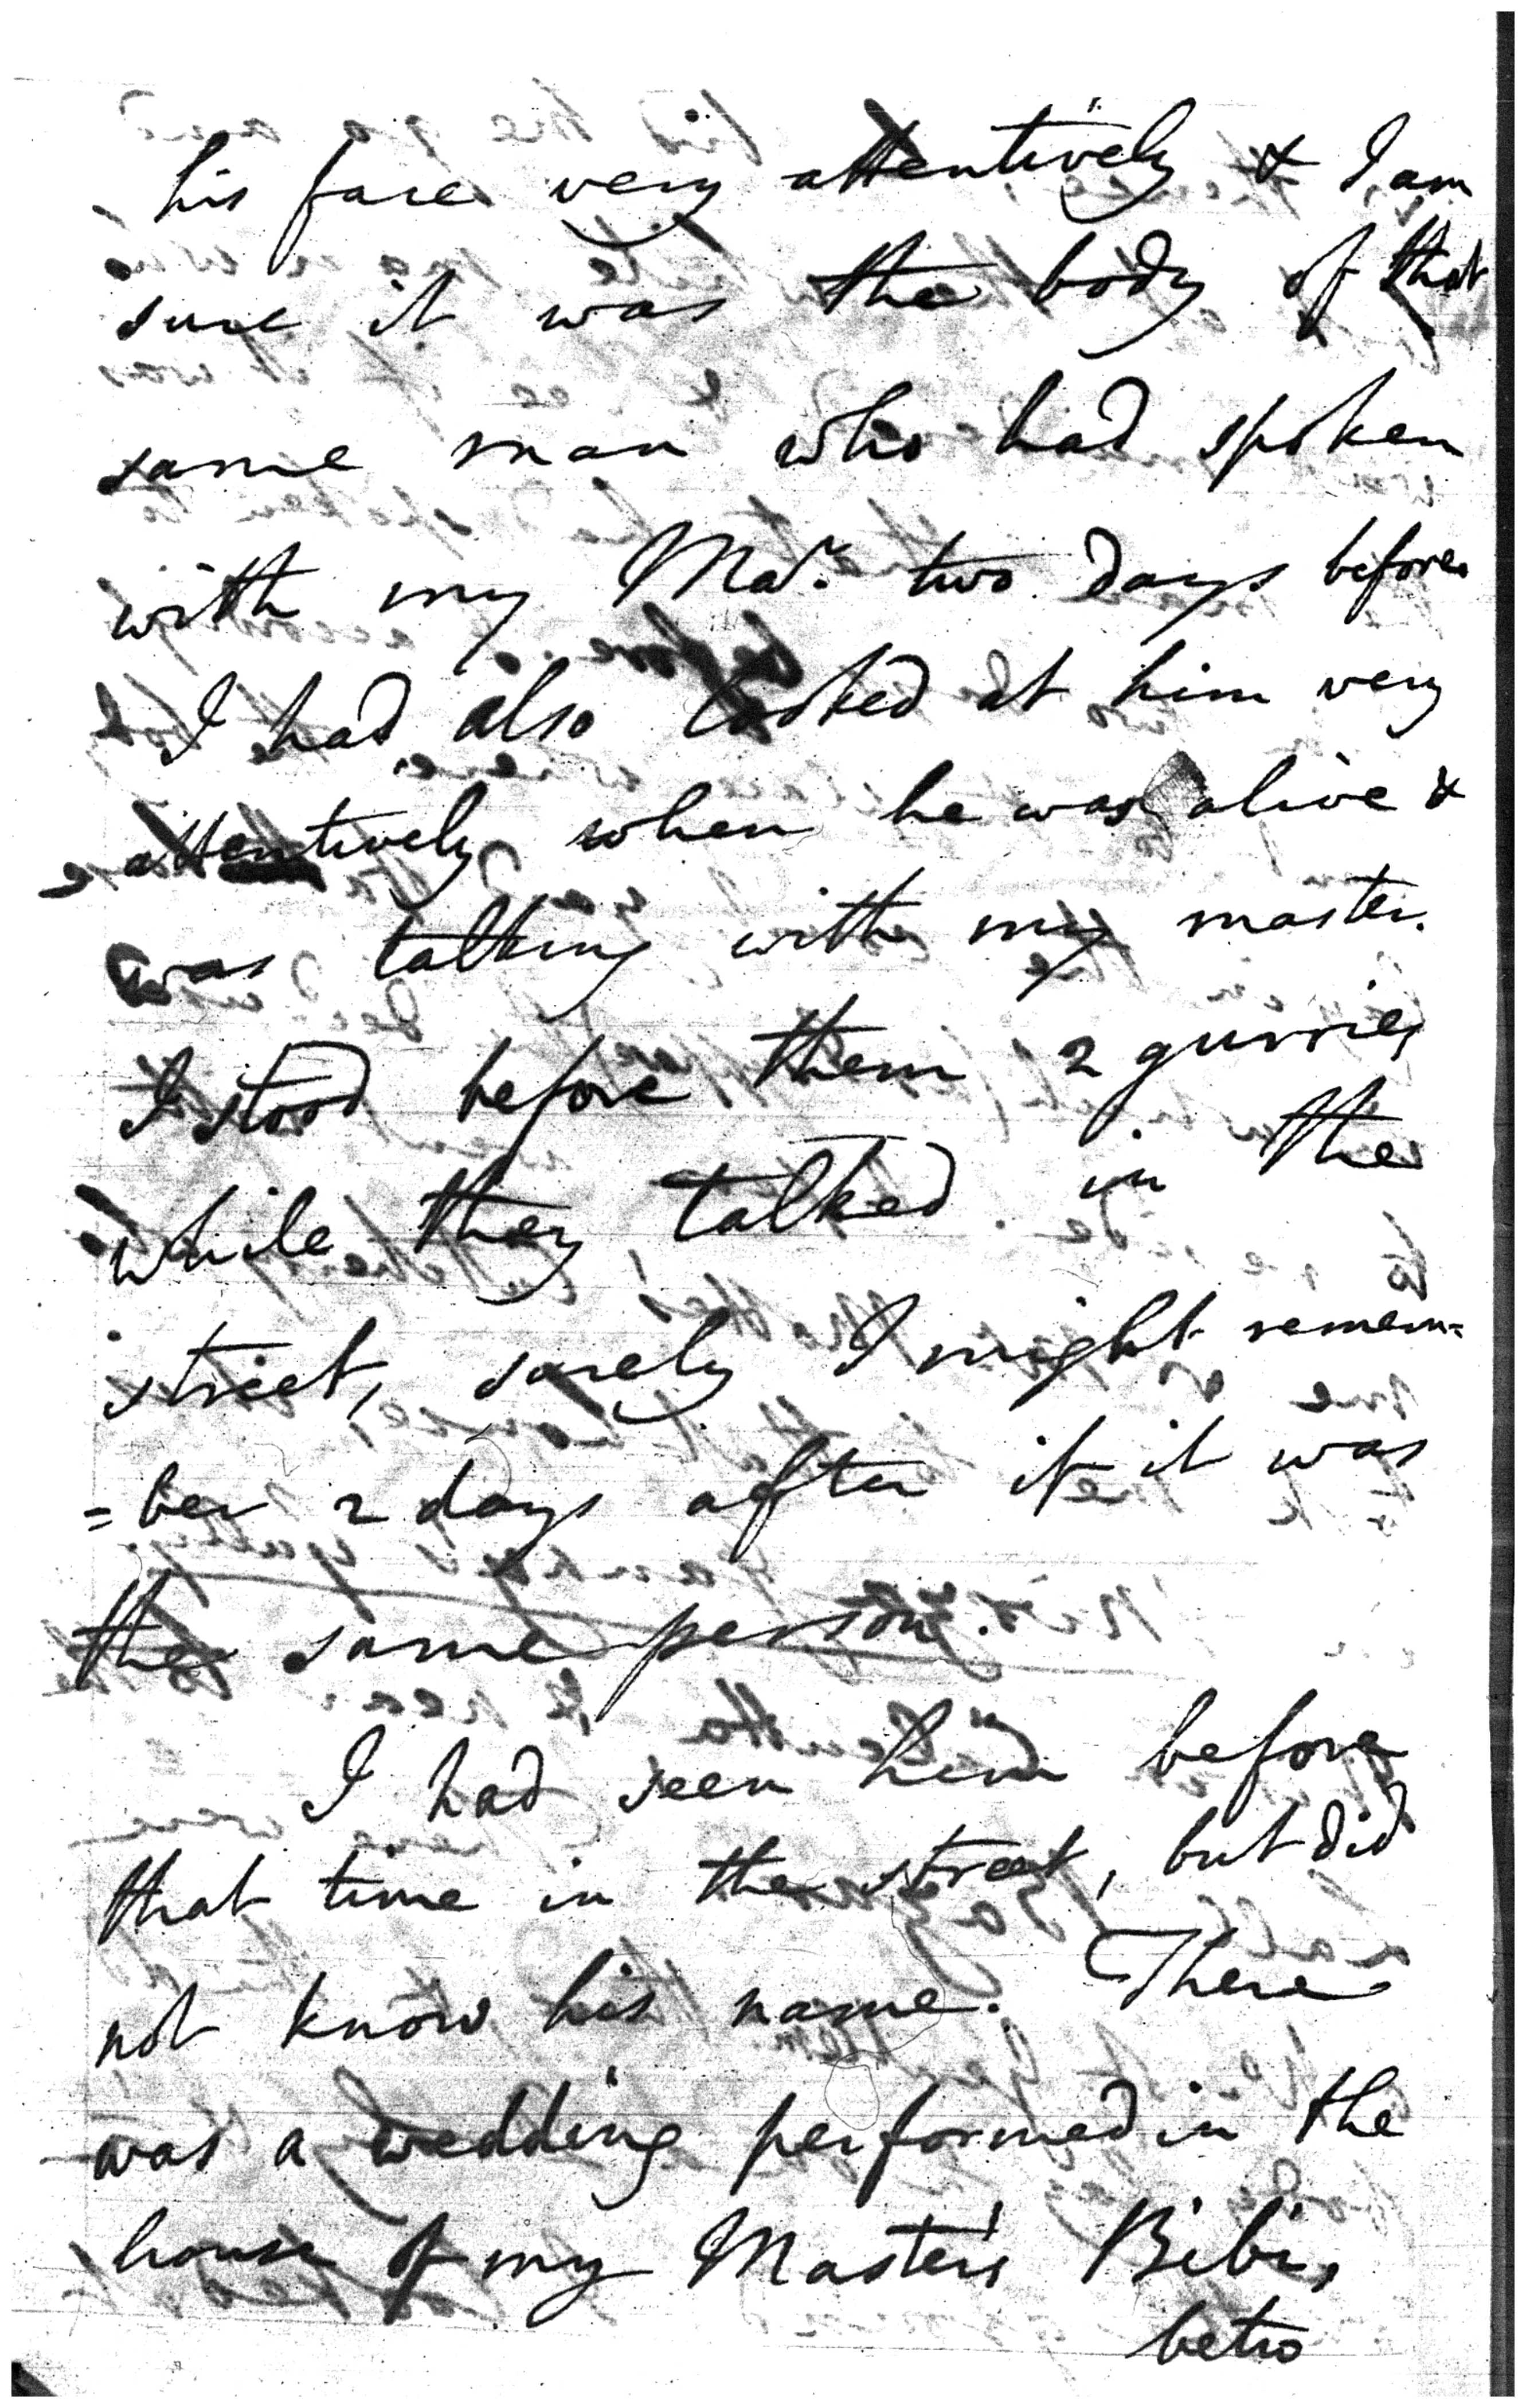 his face very attentively & I am
sure it was the body of that
same man who had spoken
with my Mas.r two days before
I had also looked at him very
attentively when he was alive &
was talking with my master.
I stood before them 2 gurries
while they talked in the
street, surely I might remem=
=ber 2 days after if it was
the same person.
I had seen him before
that time in the street, but did
not know his name. There
was a wedding performed in the
house of my Master's Bibi,
betw